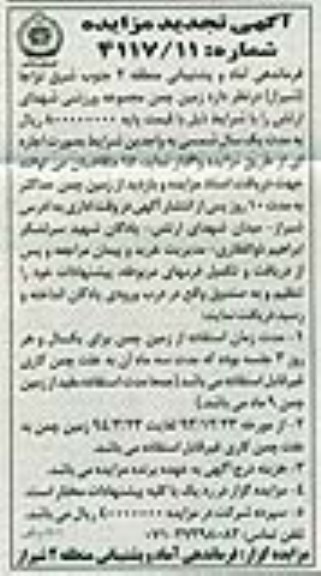 آگهی تجدید مزایده
شماره: ۴۱۱۷/۱۱
فرماندهی آماد و پشتیبانی منطقه ۲ جنوب شرق نزاجا
(شیراز) در نظر دارد زمین چمن مجموعه ورزشی شهدای
ارتش را با شرایط ذیل با قیمت پایه ریال
به مدت یک سال شمسی به واجدین شرایط بصورت اجاره
از طریق مزایده واگذار نماید. متقاضیان می توانند
جهت دریافت اسناد مزایده و بازدید از زمین چمن حداکثر
به مدت ۱۰ روز پس از انتشار آگهی در وقت اداری به آدرس
شیراز- میدان شهدای ارتش- پادگان شهید سرلشکر
ابراهیم ذوالفقاری- مدیریت خرید و پیمان مراجعه و پس
از دریافت و تکمیل فرمهای مربوطه پیشنهادات خود را
تنظیم و به صندوق واقع در درب ورودی پادگان انداخته و
رسید دریافت نمایند:
۱- مدت زمان استفاده از زمین چمن برای یکسال و هر
روز ۳ جلسه بوده که مدت سه ماه آن به علت چمن کاری
غیرقابل استفاده می باشد (جمعا مدت استفاده مفید از زمین
چمن ۹ ماه می باشد.)
۲- از مورخه ۹۳/۱۲/۲۳ لغایت ۹۴/۳/۲۳ زمین چمن به
علت چمن کاری غیرقابل استفاده می باشد.
۳- هزینه درج آگهی به عهده برنده مزایده می باشد.
۴- مزایده گزار در رد یک یا کلیه پیشنهادات مختار است.
۵- سپرده شرکت در مزایده ریال می باشد.
تلفن تماس:
مزایده گزار: فرماندهی آماد و پشتیبانی منطقه ۲ شیراز